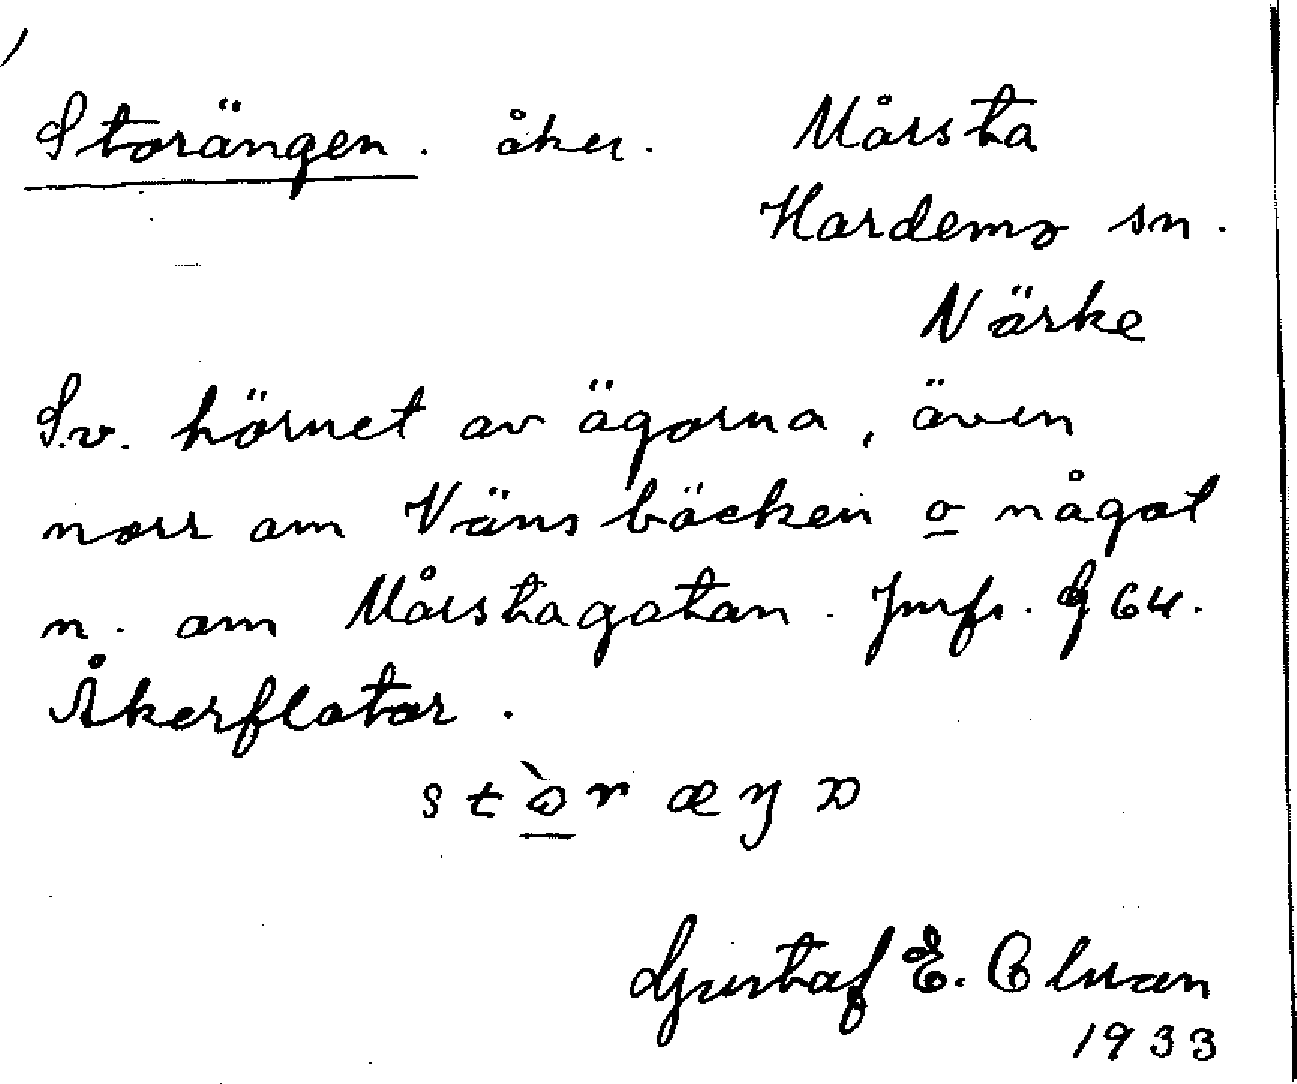 Storängen. åker. Mårsta
Hardemo sn.
Närke
S.v. hörnet av ägorna, även
norr om Vänsbäcken o något
n. om Mårstagatan. Jmfr. G 64.
Åkerflator.
Gustaf E. Elvan
1933